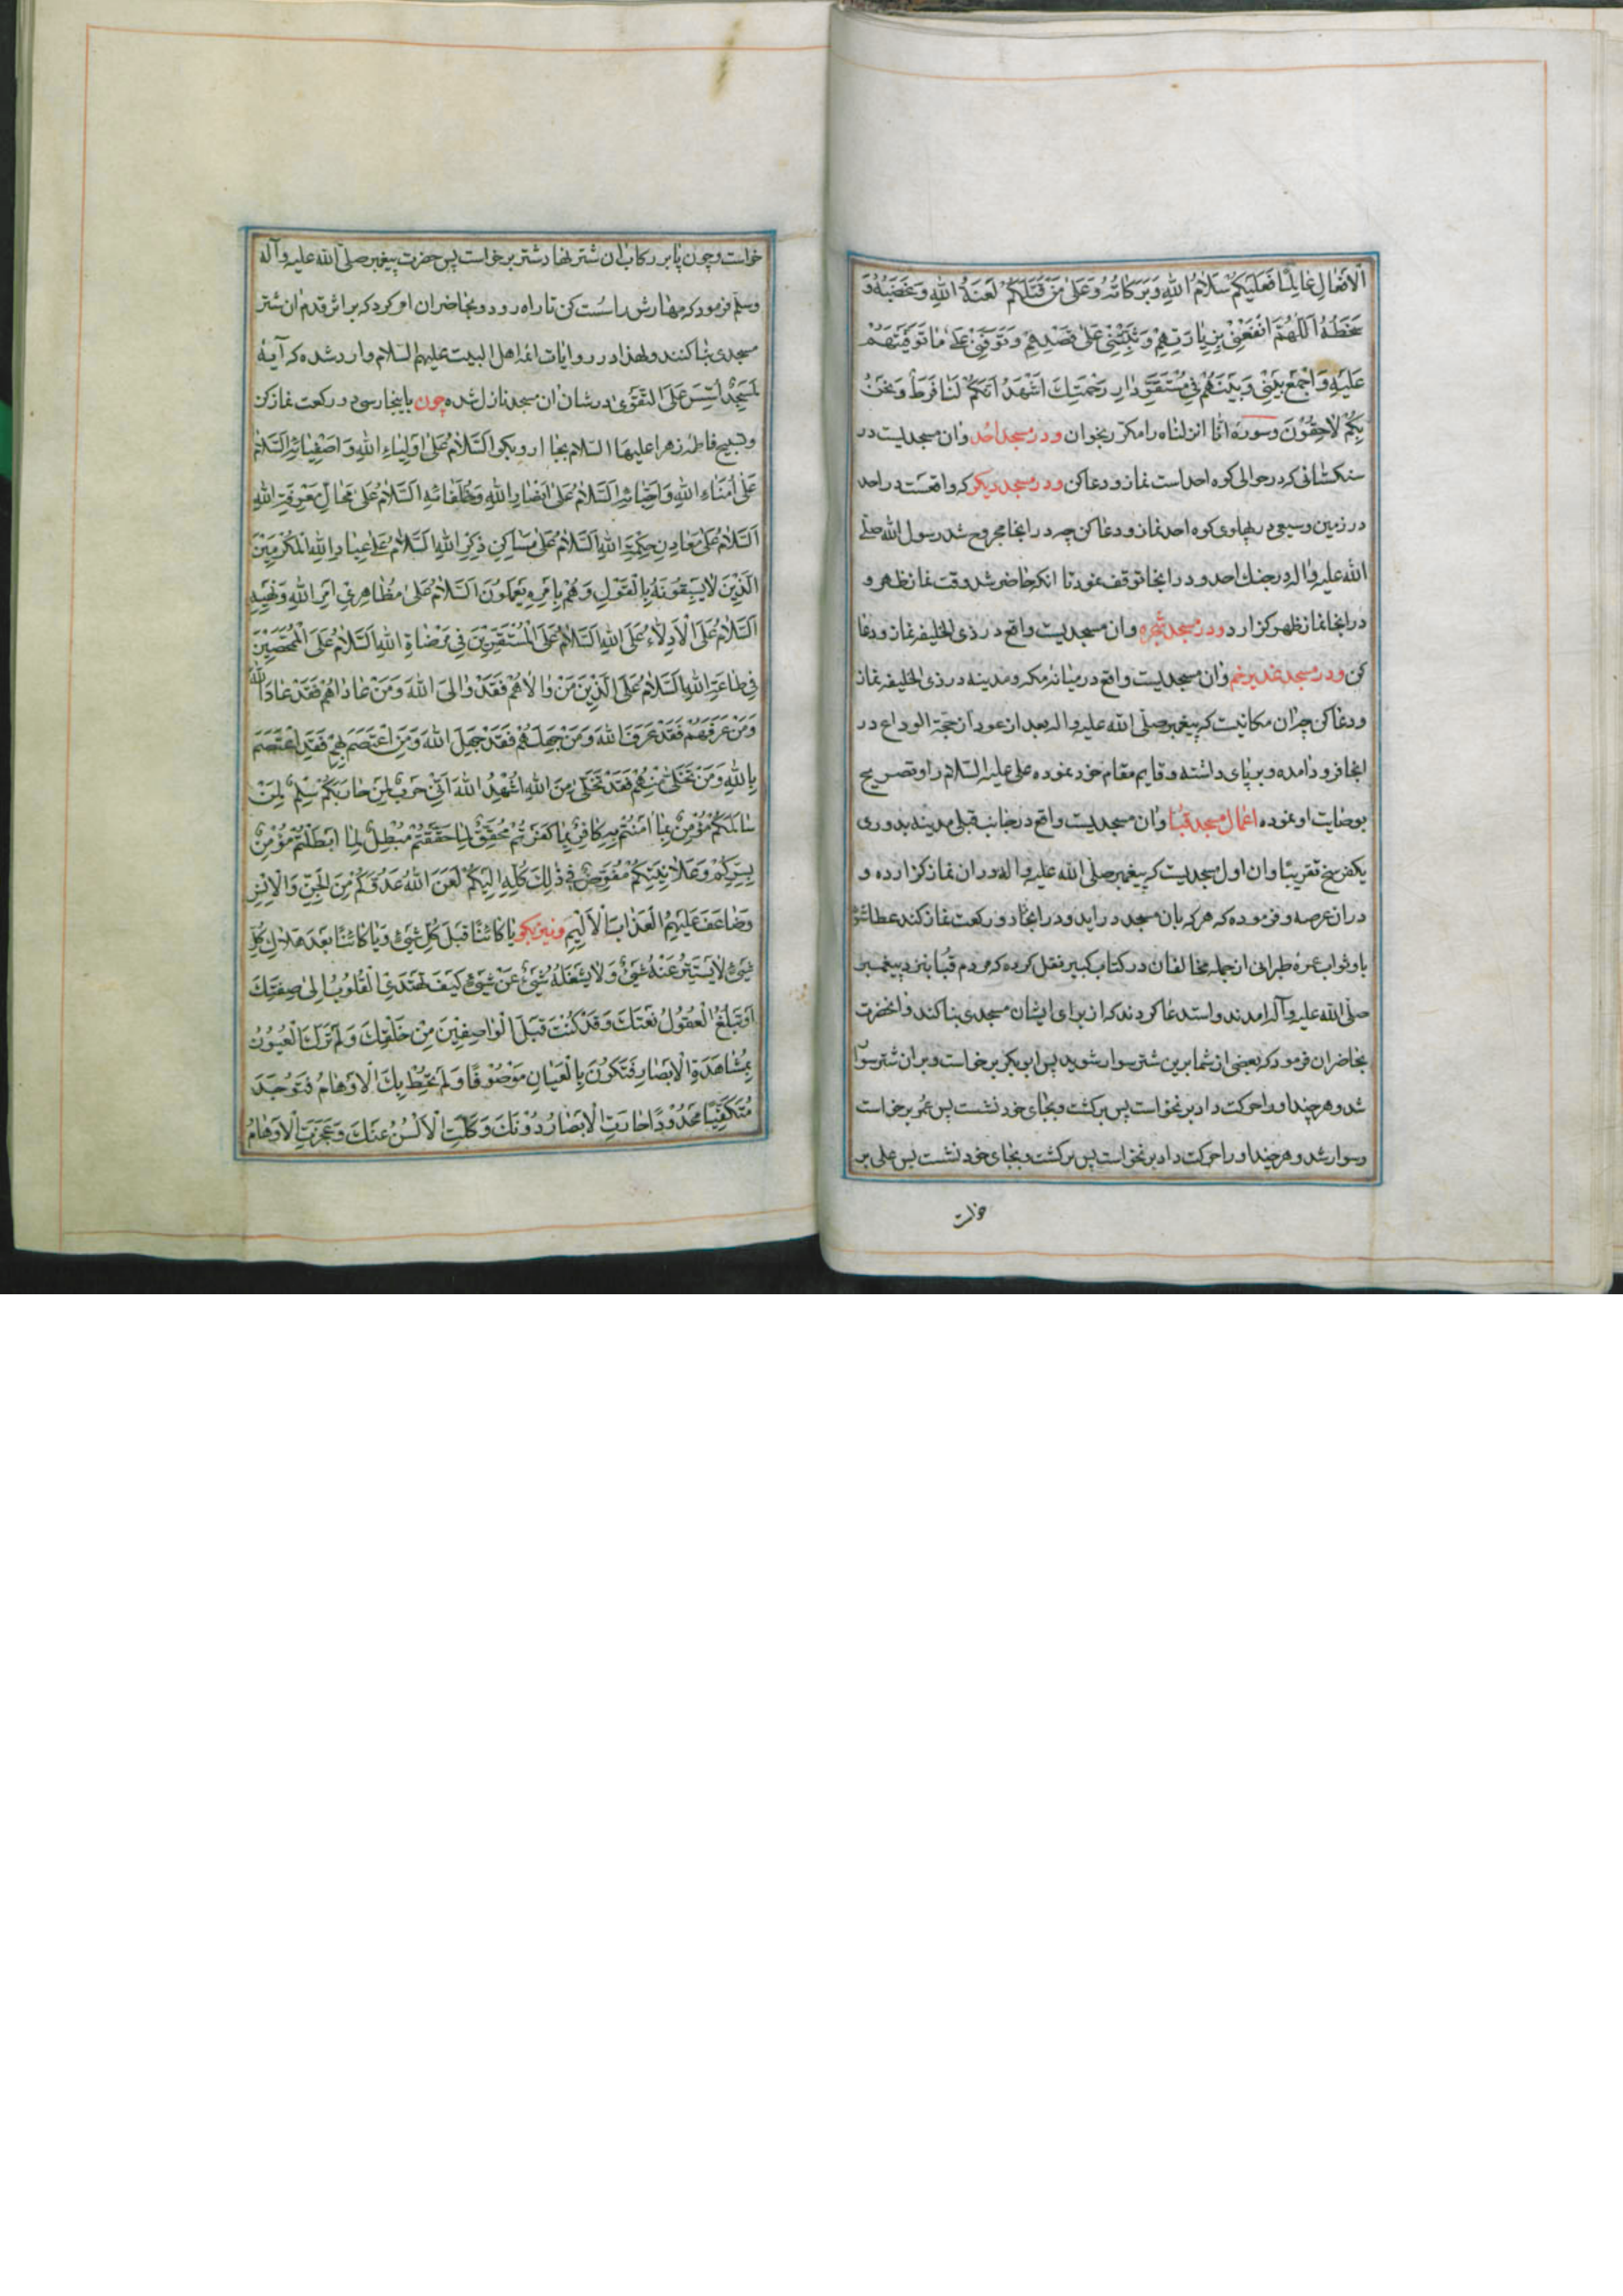 الْاَفْعالِ عٰامِلًا فَعَلَيْكُمْ سَلٰامُ اللهِ وَبَرَكٰاتُهُ وَعَلىٰ مَنْ قَتَلَكُمْ لَعْنَةُ اللهِ وَغَضَبُهُ وَ
سَخَطُهُ اَللّٰهُمَّ انْفَعْنِي بِزِيٰارَتِهِمْ وَثَبِّتْنِي عَلىٰ قَصْدِهِمْ وَتَوَفَّنِي عَلىٰ مٰا تَوَفَّيْتَهُمْ
عَلَيْهِ وَاجْمَعْ بَيْنِي وَبَيْنَهُمْ فِي مُسْتَقَرِّ دٰارِ رَحْمَتِكَ اَشْهَدُ اَنَّكُمْ لَنٰا فَرَطٌ وَنَحْنُ
بِكُمْ لٰاحِقُونَ وسوره انّا انزلناه را مكرّر بخوان ودر مسجد احُد وان مسجديست در
سنكستانى كه در حوالى كوه احد است نماز و دعا كن ودر مسجد ديكر كه واقعست در احد
در زمين وسيعى در پهلوى كوه احد نماز ودعا كن چه در انجا مجروح شد رسول الله صلّى
الله عليه واله در جنك احد ودر انجا توقف نمود تا انكه حاضر شد وقت نماز ظهر و
در انجا نماز ظهر كزارد ودر مسجد شجره وان مسجديست واقع در ذى الحليفه نماز ودعا
كن ودر مسجد غدير خم وان مسجديست واقع در ميانه مكه ومدينه در ذى الحليفه نماز
ودعا كن چه ان مكانيست كه پيغمبر صلّى الله عليه واله بعد از عود از حجّة الوداع در
انجا فرود امده وبر پاى داشته وقايم مقام خود نموده على عليه السّلام را وتصريح
بوصايت او نموده اعمال مسجد قبا وان مسجديست واقع در جانب قبلى مدينه بدورى
يكفرسخ تقريبًا وان اول مسجديست كه پيغمبر صلّى الله عليه واله در ان نماز كزارده و
در ان عرصه وفرموده كه هر كه بان مسجد در ايد ودر انجا دو ركعت نماز كند عطا شو
باو ثواب عمره طبرانى از جمله مخالفان در كتاب كبير نقل كرده كه مردم قبا بنزد پيغمبر
صلّى الله عليه وآله امدند واستدعا كردند كه از براى ايشان مسجدى بنا كند وانحضرت
بحاضران فرمود كه بعضى از شما برين شتر سوار شويد پس ابو بكر برخواست وبر ان شتر سوار
شد وهر چند او را حركت داد بر نخواست پس بركشت وبجاى خود نشست پس عمر برخواست
وسوار شد وهر چند او را حركت داد بر نخواست پس بركشت وبجاى خود نشست پس على بر
خواست
خواست وچون پا بر ركاب ان شتر نهاد شتر برخواست پس حضرت پيغمبر صلّى الله عليه وآله
وسلّم فرمود كه مهارش را سُست كن تا راه رود وبحاضران امر كرد كه بر اثر قدم ان شتر
مسجدى بنا كنند ولهذا در روايات ائمه اهل البيت عليهم السّلام وارد شده كه آيه
لَمَسْجِدٌ اُسِّسَ عَلَى التَّقْوىٰ در شان ان مسجد نازل شده چون باينجا رسى دو ركعت نماز كن
وتسبيح فاطمه زهرا عليها السلام بجا ار وبكو اَلسَّلٰامُ عَلىٰ اَوْلِيٰاءِ اللهِ وَاَصْفِيٰائِهِ اَلسَّلٰامُ
عَلىٰ اُمَنٰاءِ اللهِ وَاَحِبّٰائِهِ اَلسَّلٰامُ عَلىٰ اَنْصٰارِ اللهِ وَخُلَفٰائِهِ اَلسَّلٰامُ عَلىٰ مَحٰالِّ مَعْرِفَةِ اللهِ
اَلسَّلٰامُ عَلىٰ مَعٰادِنِ حِكْمَةِ اللهِ اَلسَّلٰامُ عَلىٰ مَسٰاكِنِ ذِكْرِ اللهِ اَلسَّلٰامُ عَلىٰ عِبٰادِ اللهِ الْمُكْرَمِينَ
الَّذِينَ لٰا يَسْبِقُونَهُ بِالْقَوْلِ وَهُمْ بِاَمْرِهِ يَعْمَلُونَ اَلسَّلٰامُ عَلىٰ مُظٰاهِرِي اَمْرِ اللهِ وَنَهْيِهِ
اَلسَّلٰامُ عَلَى الْاَدِلّٰاءِ عَلَى اللهِ اَلسَّلٰامُ عَلَى الْمُسْتَقِرِّينَ فِي مَرْضٰاةِ اللهِ اَلسَّلٰامُ عَلَى الْمُمَحَّصِينَ
فِي طٰاعَةِ اللهِ اَلسَّلٰامُ عَلَى الَّذِينَ مَنْ وٰالٰاهُمْ فَقَدْ وٰالَى اللهَ وَمَنْ عٰادٰاهُمْ فَقَدْ عٰادَى اللهَ
وَمَنْ عَرَفَهُمْ فَقَدْ عَرَفَ اللهَ وَمَنْ جَهِلَهُمْ فَقَدْ جَهِلَ اللهَ وَمَنِ اعْتَصَمَ بِهِمْ فَقَدِ اعْتَصَمَ
بِاللهِ وَمَنْ تَخَلّىٰ مِنْهُمْ فَقَدْ تَخَلّىٰ مِنَ اللهِ اُشْهِدُ اللهَ اَنِّي حَرْبٌ لِمَنْ حٰارَبَكُمْ سِلْمٌ لِمَنْ
سٰالَمَكُمْ مُؤْمِنٌ بِمٰا اٰمَنْتُمْ بِهِ كٰافِرٌ بِمٰا كَفَرْتُمْ مُحَقِّقٌ لِمٰا حَقَّقْتُمْ مُبْطِلٌ لِمٰا اَبْطَلْتُمْ مُؤْمِنٌ
بِسِرِّكُمْ وَعَلٰانِيَتِكُمْ مُفَوِّضٌ فِي ذٰلِكَ كُلِّهِ اِلَيْكُمْ لَعَنَ اللهُ عَدُوَّكُمْ مِنَ الْجِنِّ وَالْاِنْسِ
وَضٰاعَفَ عَلَيْهِمُ الْعَذٰابَ الْاَلِيمَ ونيز بكو يٰا كٰائِنًا قَبْلَ كُلِّ شَيْءٍ وَيٰا كٰائِنًا بَعْدَ هَلٰاكِ كُلِّ
شَيْءٍ لٰا يَسْتَتِرُ عَنْهُ شَيْءٌ وَلٰا يَشْغَلُهُ شَيْءٌ عَنْ شَيْءٍ كَيْفَ تَهْتَدِي الْقُلُوبُ اِلىٰ صِفَتِكَ
اَوْ تَبْلُغُ الْعُقُولُ نَعْتَكَ وَقَدْ كُنْتَ قَبْلَ الْوٰاصِفِينَ مِنْ خَلْقِكَ وَلَمْ تَرَكَ الْعُيُونُ
بِمُشٰاهَدَةِ الْاَبْصٰارِ فَتَكُونَ بِالْعَيٰانِ مَوْصُوفًا وَلَمْ تُحِطْ بِكَ الْاَوْهٰامُ فَتُوجَدَ
مُتَكَيِّفًا مَحْدُودًا حٰارَتِ الْاَبْصٰارُ دُونَكَ وَكَلَّتِ الْاَلْسُنُ عَنْكَ وَعَجَزَتِ الْاَوْهٰامُ